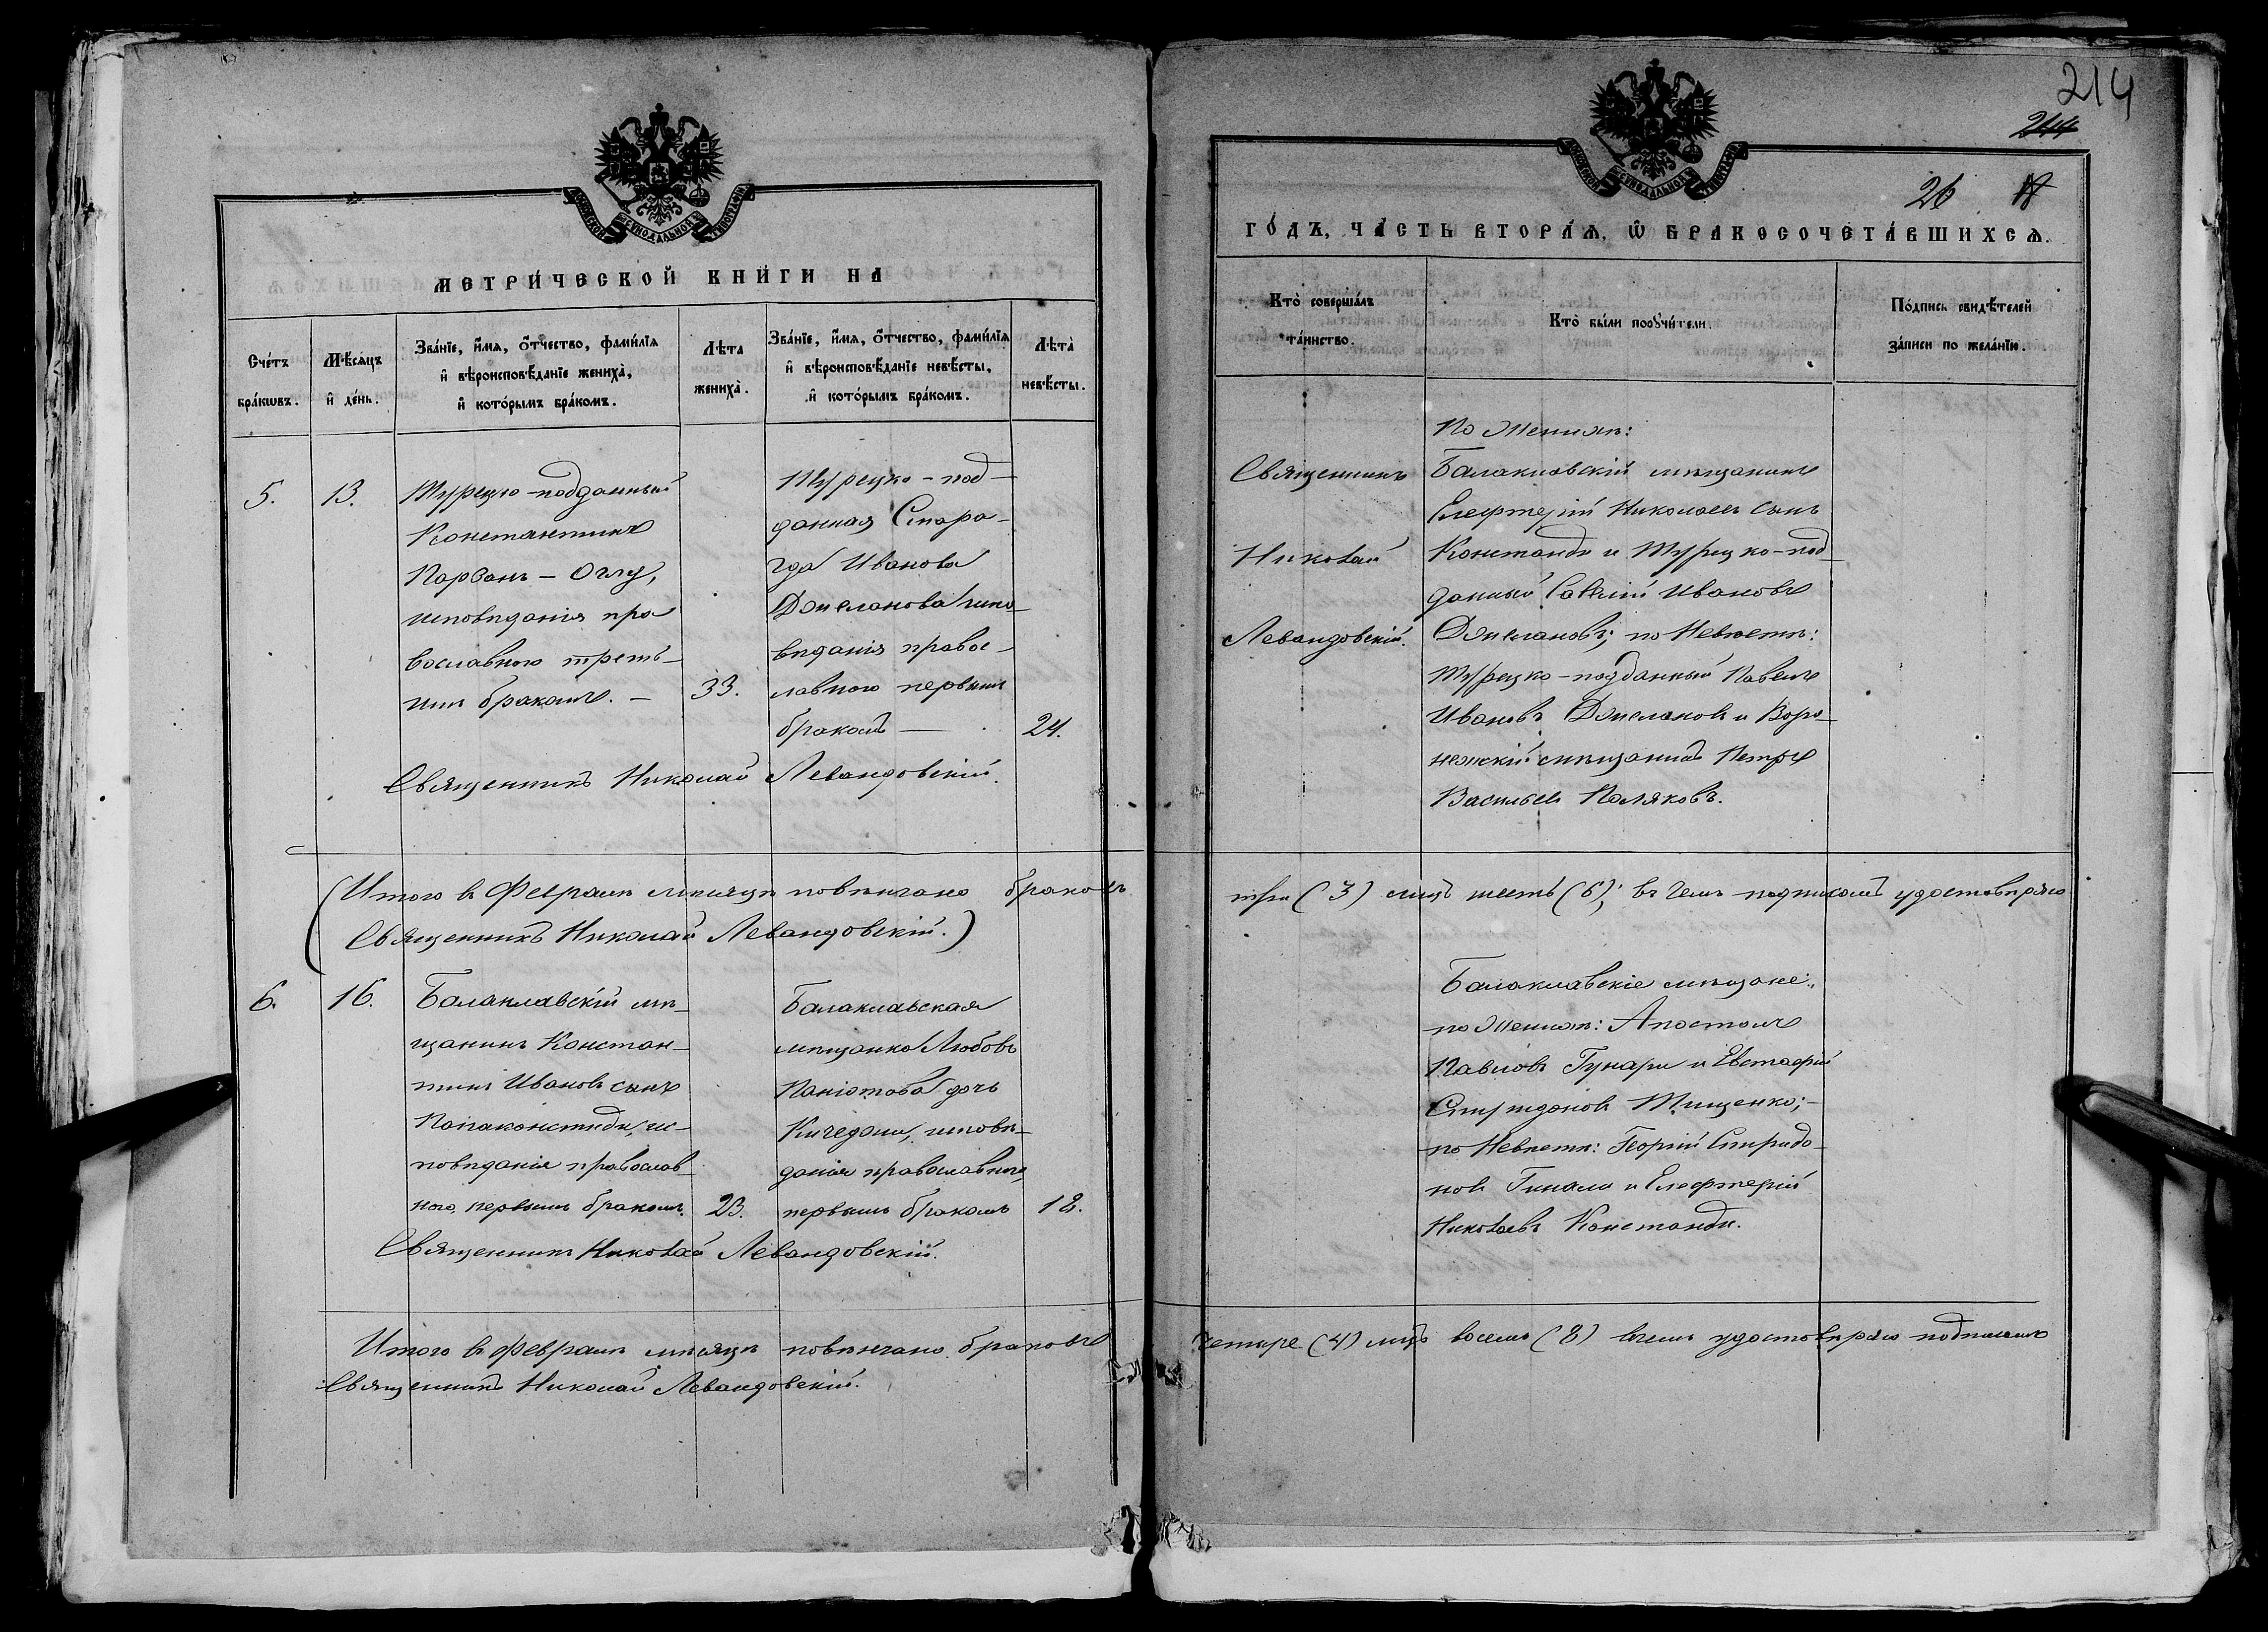 МОСКОВСКОЙ СѴНОДАЛЬНОЙ ТИПОГРАФІИ
МЕТРИ́ЧЕСКОЙ КНИ́ГИ НА
Сче́тъ бра́кѡвъ.
Мѣ́сѧцъ и҆ де́нь.
Зва́нїе, и҆́мѧ, ѻ҆́тчество, фами́лїѧ
и҆ вѣроисповѣ́данїе жениха̀,
и҆ кото́рымъ бра́комъ.
Лѣ̑та жениха̀.
Зва́нїе, и҆́мѧ, ѻ҆́тчество, фами́лїѧ
и҆ вѣроисповѣ́данїе невѣ́сты,
и҆ кото́рымъ бра́комъ.
Лѣ́та̀ невѣ́сты.
5.
13.
Турецко-подданный
Константинъ
Парванъ-Оглу,
исповѣданія пра
вославного треть-
имъ бракомъ. —
33.
Турецко-под-
данная Смара-
гда Иванова
Джеланова испо-
вѣданія правос-
лавного первымъ
бракомъ —
24.
Священникъ Николай Левандовскій.
(Итого въ Февралѣ мѣсяцѣ повѣнчано браковъ
Священникъ Николай Левандовскій.)
6.
16.
Балаклавскій мѣ-
щанинъ Констан-
тинъ Ивановъ сынъ
Папаконстиди, ис-
повѣданія православ-
ного, первымъ бракомъ.
23.
Балаклавская
мѣщанка Любовь
Паніотова дочь
исповѣ-
данія православного,
первымъ бракомъ
18.
Священникъ Николай Левандовскій.
Итого въ февралѣ мѣсяцѣ повѣнчано браковъ
Священникъ Николай Левандовскій.
214
244
26
18
МОСКОВСКОЙ СѴНОДАЛЬНОЙ ТИПОГРАФІИ
ГО́ДЪ, ЧА́СТЬ ВТОРА́Ѧ, Ѽ БРАКОСОЧЕТА́ВШИХСѦ.
Кто̀ соверша́лъ та́инство.
Кто̀ бы́ли порꙋчи́тели.
По́дпись свидѣ́телей за́писи по жела́нїю.
Священникъ
Николай
Левандовскій.
По Женихѣ:
Балаклавскій мѣщанинъ
Елефтерій Николаевъ сынъ
Констанди и Турецко-под-
данный Савелій Ивановъ
Джелановъ; по Невѣстѣ:
Турецко-подданный Павелъ
Ивановъ Джелановъ и Воро-
нежскій мѣщанинъ Петръ
Васильевъ Поляковъ.
три (3) лицъ шесть (6); въ чемъ подписомъ удостовѣряю
Балаклавскіе мѣщане:
по Женихѣ: Апостолъ
Павловъ Гунари и Евстафій
Спиридоновъ Тищенко;-
по Невѣстѣ: Георгій Спиридо-
новъ Гинали и Елефтерій
Николаевъ Констанди.
четыре (4) лицъ восемь (8) въ чемъ удостовѣряю подписомъ